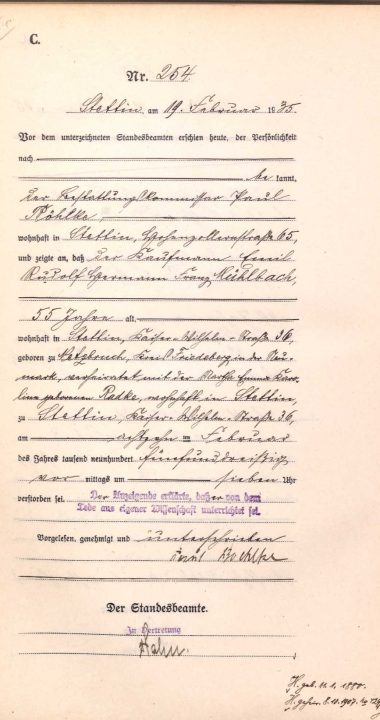 C.
Nr. 254
Stettin, am 19. Februar 1935.
Vor dem unterzeichneten Standesbeamten erschien heute, der Persönlichkeit
nach
bekannt,
der Bestattungskommissar Paul
Röhlke,
wohnhaft in Stettin, Hohenzollernstraße 65,
und zeigte an, daß der Kaufmann Emil
Rudolf Hermann Franz Mühlbach,
55 Jahre alt
wohnhaft in Stettin, Kaiser-Wilhelm-Straße 36,
geboren zu Netzbruch, Kreis Friedeberg in der Neu-
mark, verheiratet mit der Martha Emma Karo-
line geborenen Radke, wohnhaft in Stettin,
zu Stettin, Kaiser-Wilhelm-Straße 36,
am achtzehnten Februar
des Jahres tausend neunhundert fünfunddreißig
vor mittags um sieben Uhr
verstorben sei. Der Anzeigende erklärte, daß er von dem
Tode aus eigener Wissenschaft unterrichtet sei.
Vorgelesen, genehmigt und unterschrieben
Paul
Der Standesbeamte.
In Vertretung
Hahn.
geb. 11. 1. 1880.
8. 10. 1907.